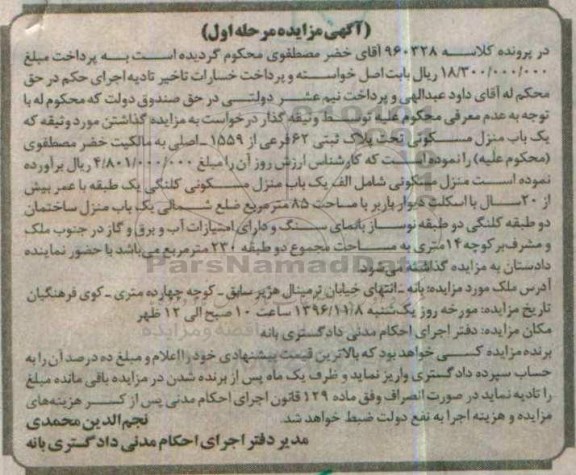 (آگهی مزایده مرحله اول)
در پرونده کلاسه ۹۶۰۳۲۸ آقای خضر مصطفوی محکوم گردیده است به پرداخت مبلغ
۱۸/۳۰۰/۰۰۰/۰۰۰ ریال بابت اصل خواسته و پرداخت خسارات تاخیر تادیه اجرای حکم در حق
محکم له آقای داود عبدالهی و پرداخت نیم عشر دولتی در حق صندوق دولت که محکوم له با
توجه به عدم معرفی محکوم علیه توسط وثیقه گذار درخواست به مزایده گذاشتن مورد وثیقه که
یک باب منزل مسکونی تحت پلاک ثبتی ۶۲ فرعی از ۱۵۵۹ـ اصلی به مالکیت خضر مصطفوی
(محکوم علیه) را نموده است که کارشناس ارزش روز آن را مبلغ ۴/۸۰۱/۰۰۰/۰۰۰ ریال برآورده
نموده است منزل مسکونی شامل الف یک باب منزل مسکونی کلنگی یک طبقه با عمر بیش
از ۲۰سال با اسکلت دیوار باربر با مساحت ۸۵ مترمربع ضلع شمالی یک باب منزل ساختمان
دو طبقه کلنگی دو طبقه نوساز بانمای سنگ و دارای امتیازات آب و برق و گاز در جنوب ملک
و مشرف بر کوچه ۱۴متری به مساحت مجموع دو طبقه ۲۳۰ مترمربع می‌باشد با حضور نماینده
دادستان به مزایده گذاشته می‌شود.
ParsNamadData
آدرس ملک مورد مزایده: بانه ـ انتهای خیابان ترمینال هژیر سابق ـ کوچه چهارده متری ـ کوی فرهنگیان
تاریخ مزایده: مورخه روز یک‌شنبه ۱۳۹۶/۱۱/۸ ساعت ۱۰ صبح الی ۱۲ ظهر
مکان مزایده: دفتر اجرای احکام مدنی دادگستری بانه
برنده مزایده کسی خواهد بود که بالاترین قیمت پیشنهادی خود را اعلام و مبلغ ده درصد آن را به
حساب سپرده دادگستری واریز نماید و ظرف یک ماه پس از برنده شدن در مزایده باقی مانده مبلغ
را تادیه نماید در صورت انصراف وفق ماده ۱۲۹ قانون اجرای احکام مدنی پس از کسر هزینه‌های
مزایده و هزینه اجرا به نفع دولت ضبط خواهد شد.
نجم‌الدین محمدی
مدیر دفتر اجرای احکام مدنی دادگستری بانه